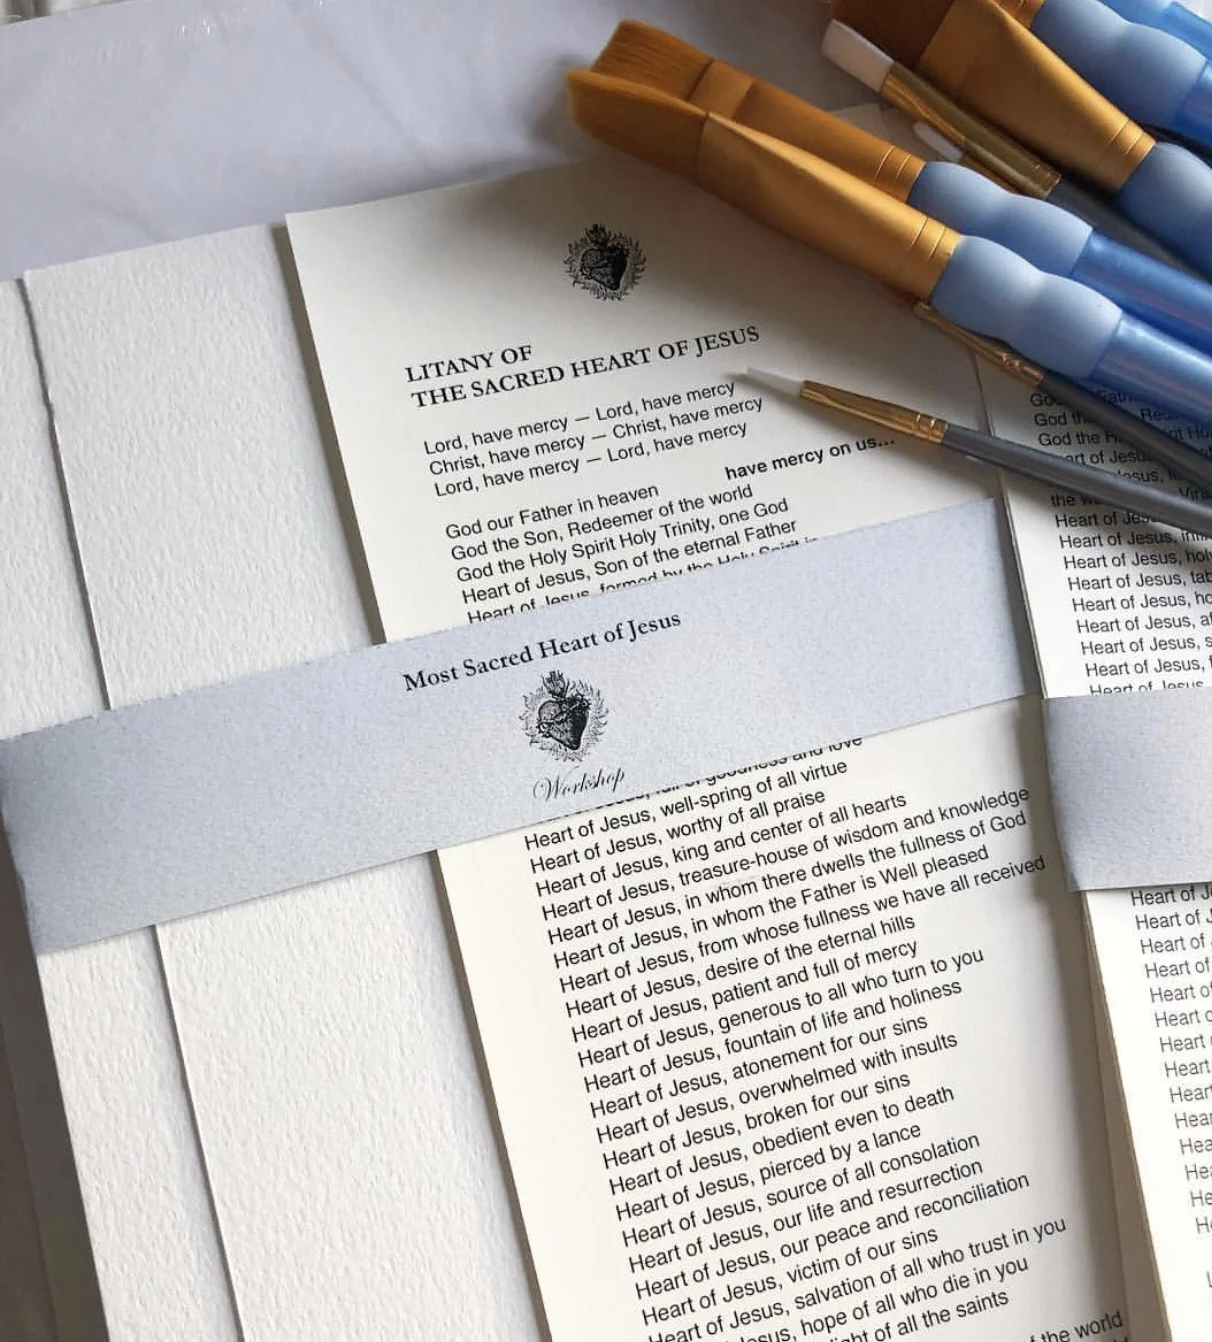 LITANY OF
THE SACRED HEART OF JESUS
Lord, have mercy — Lord, have mercy
Christ, have mercy — Christ, have mercy
Lord, have mercy — Lord, have mercy
have mercy on us...
God our Father in heaven
God the Son, Redeemer of the world
God the Holy Spirit Holy Trinity, one God
Heart of Jesus, Son of the eternal Father
Heart of Jesus, formed by the Holy Spirit in
Most Sacred Heart of Jesus
Workshop
full of goodness and love
Heart of Jesus, well-spring of all virtue
Heart of Jesus, worthy of all praise
Heart of Jesus, king and center of all hearts
Heart of Jesus, treasure-house of wisdom and knowledge
Heart of Jesus, in whom there dwells the fullness of God
Heart of Jesus, in whom the Father is Well pleased
Heart of Jesus, from whose fullness we have all received
Heart of Jesus, desire of the eternal hills
Heart of Jesus, patient and full of mercy
Heart of Jesus, generous to all who turn to you
Heart of Jesus, fountain of life and holiness
Heart of Jesus, atonement for our sins
Heart of Jesus, overwhelmed with insults
Heart of Jesus, broken for our sins
Heart of Jesus, obedient even to death
Heart of Jesus, pierced by a lance
Heart of Jesus, source of all consolation
Heart of Jesus, our life and resurrection
Heart of Jesus, our peace and reconciliation
Heart of Jesus, victim of our sins
Heart of Jesus, salvation of all who trust in you
Jesus, hope of all who die in you
of all the saints
of the world
God
God the
God the
of Jesus
Jesus,
the
Heart of
Heart of Jesus,
Heart of Jesus,
Heart of Jesus,
Heart of Jesus,
Heart of Jesus,
Heart of Jesus,
Heart of Jesus,
Heart of Jesus
Heart of
Heart of
Heart of
Heart of
Heart of
Heart
Heart
Heart
Heart